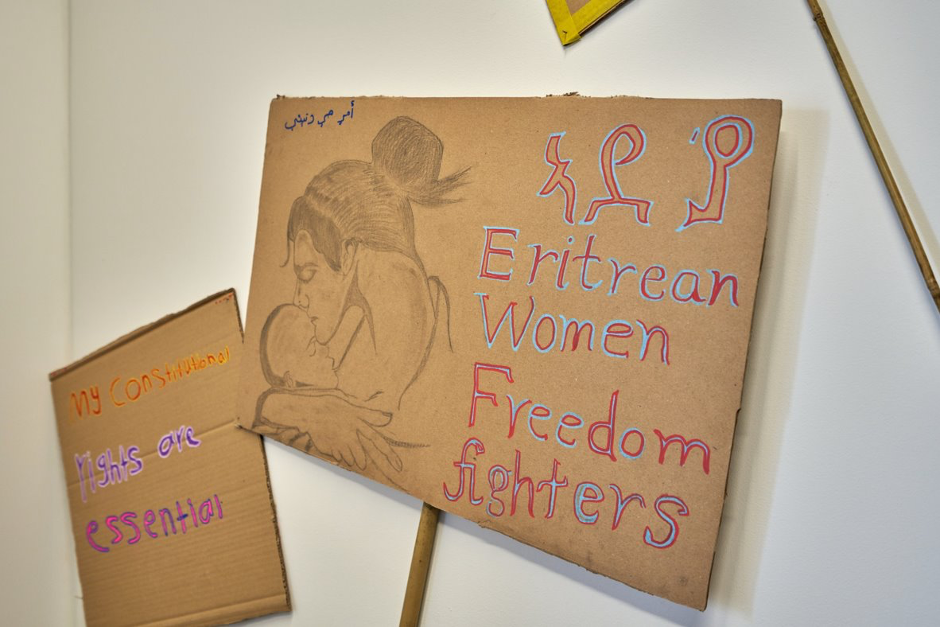 أمي هي دنيتي
ኣደይ
Eritrean
Women
Freedom
fighters
my constitutional
rights are
essential